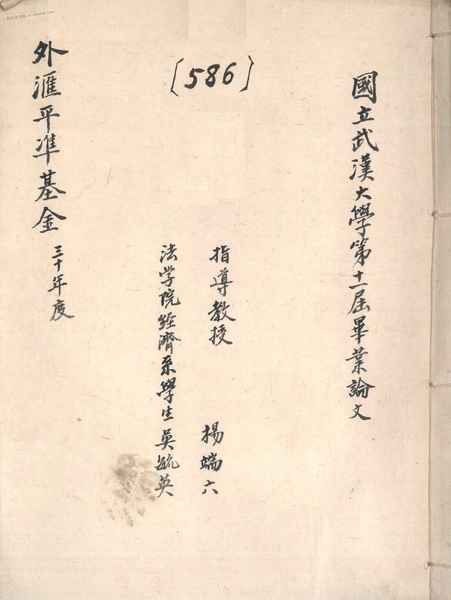 國立武漢大學第十一屆畢業論文
〔586〕
指導教授 楊端六
法学院經濟系學生吳毓英
外滙平準基金 三十年度